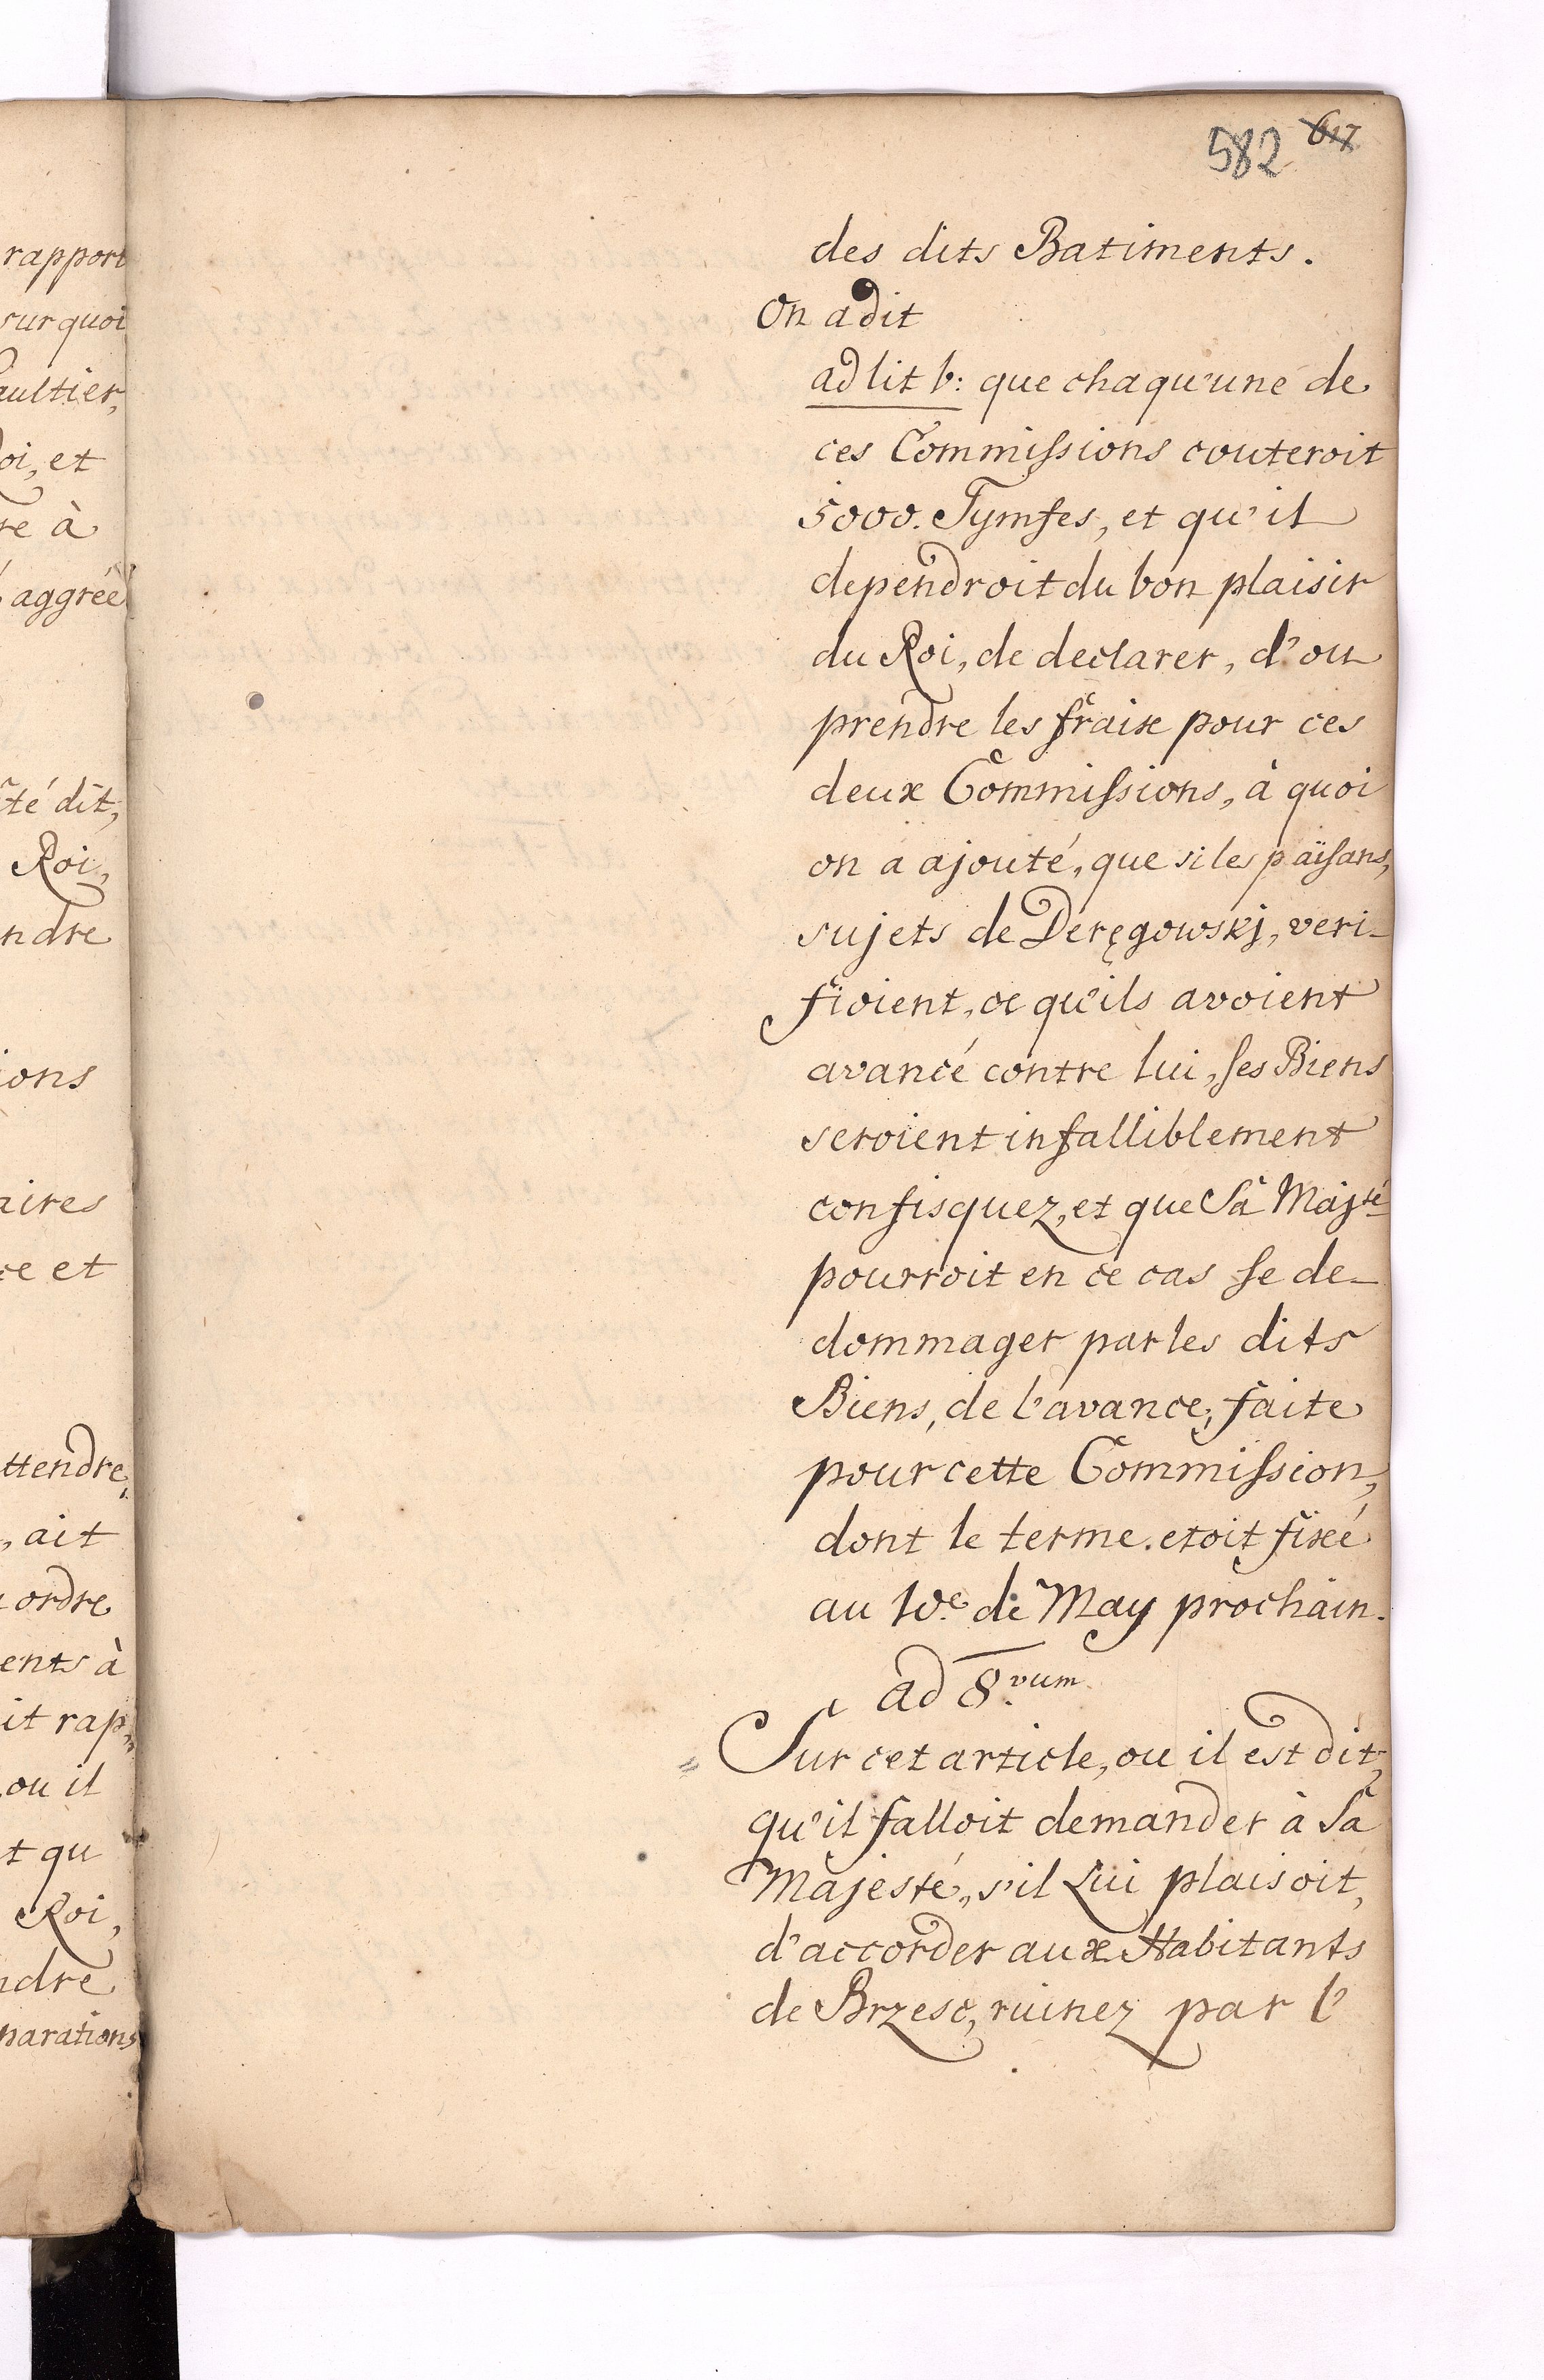 rapport
sur quoi
aultier,
oi, et
re à
aggréé
té dit,
Roi,
ndre
ions
aires
ce et
ttendre,
, ait
ordre
ents à
it rap„
ou il
t qu
Roi,
ndre
parations
582 617
des dits Batiments.
On a dit
ad lit b: que chaqu'une de
ces Commissions couteroit
5000. Tymfes, et qu'il
dependroit du bon plaisir
du Roi, de declarer, d'ou
prendre les fraix pour ces
deux Commissions, à quoi
on a ajouté, que si les païsans,
sujets de Deręgowskj, veri-
fioient, ce qu'ils avoient
avancé contre lui, ses Biens
seroient infalliblement
confisquez, et que Sa Majté
pourroit en ce cas se de-
dommager par les dits
Biens, de l'avance, faite
pour cette Commission,
dont le terme etoit fixé
au 10e de May prochain.
ad 8vum
Sur cet article, ou il est dit,
qu'il falloit demander à Sa
Majesté, s'il Lui plaisoit,
d'accorder aux Habitants
de Brzesc, ruinez par l'